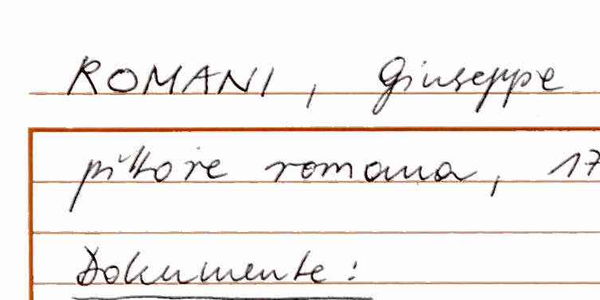 ROMANI, Giuseppe
pittore romana, 17
Dokumente: